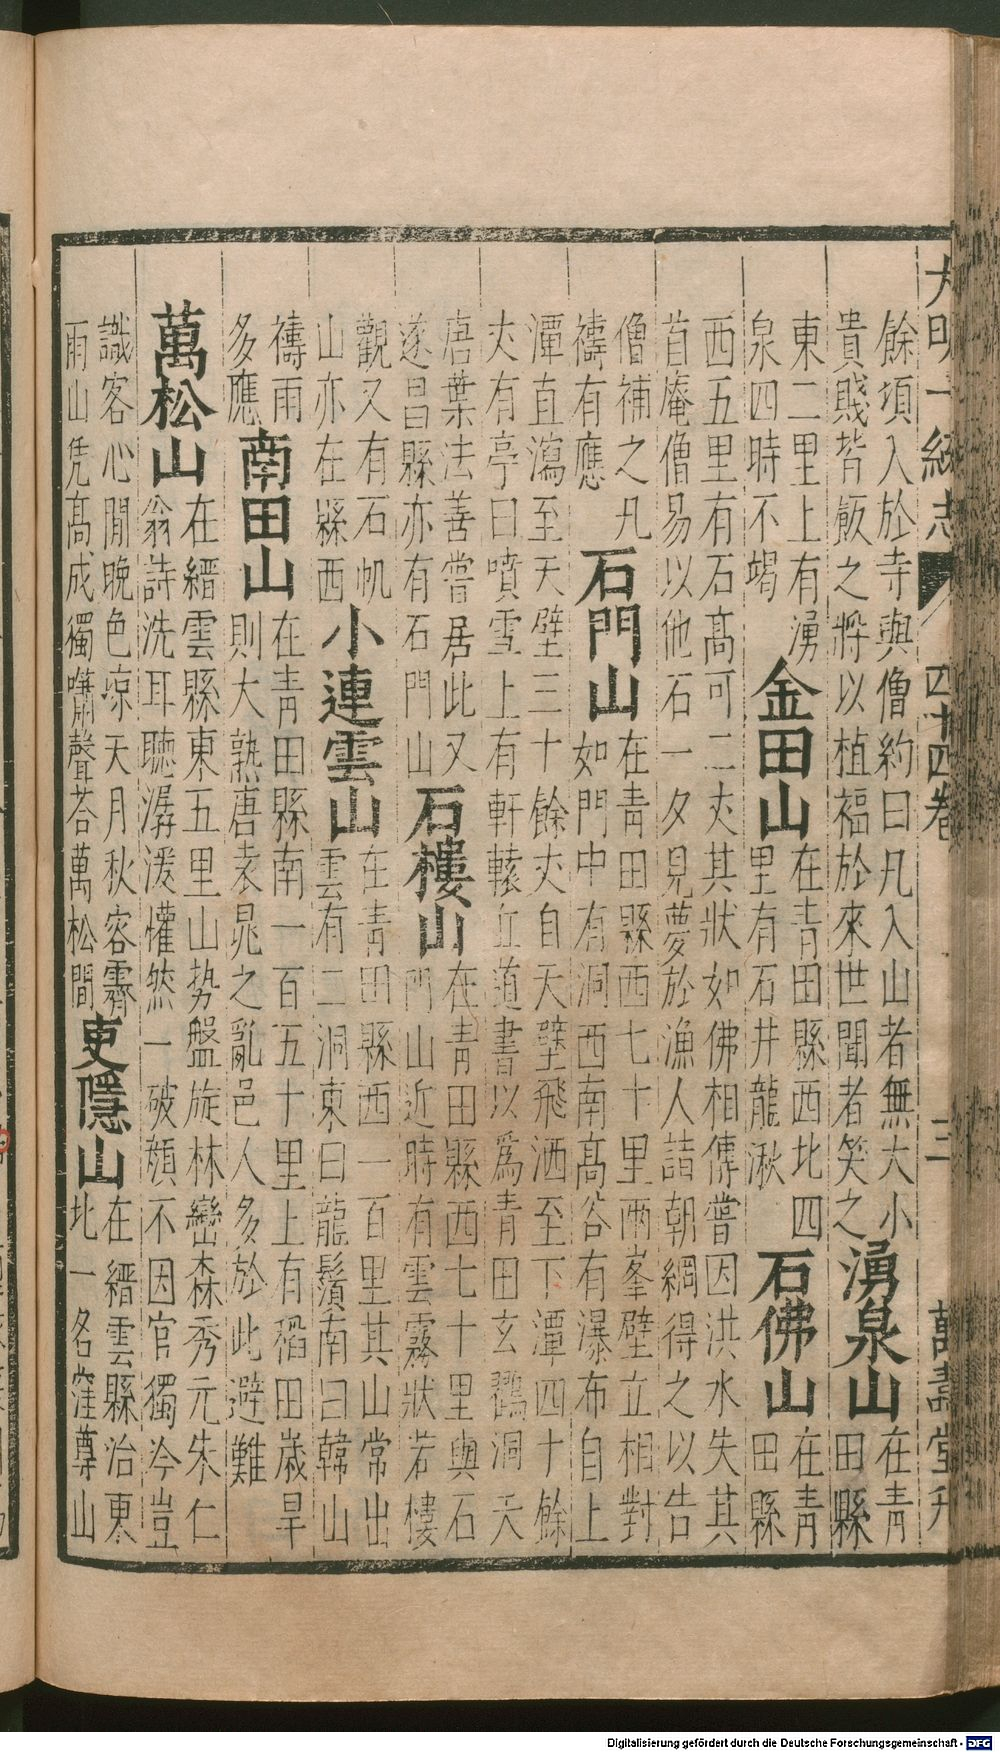 大明一統志 四十四卷 三 萬壽堂刊
餘頃入於寺與僧約曰凡入山者無大小
貴賤皆飯之將以植福於來世聞者笑之
湧泉山
在青
田縣
東二里上有湧
泉四時不竭
金田山
在青田縣西北四
里有石井龍湫
石佛山
在青
田縣
西五里有石高可二丈其狀如佛相傳嘗因洪水失其
首庵僧易以他石一夕見夢於漁人詰朝網得之以告
僧補之凡
禱有應
石門山
在青田縣西七十里兩峯壁立相對
如門中有洞西南高谷有瀑布自上
潭直瀉至天壁三十餘丈自天壁飛洒至下潭四十餘
丈有亭曰噴雪上有軒轅丘道書以爲青田玄鶴洞天
唐葉法善嘗居此又
遂昌縣亦有石門山
石樓山
在青田縣西七十里與石
門山近時有雲霧狀若樓
觀又有石帆
山亦在縣西
小連雲山
在青田縣西一百里其山常出
雲有二洞東曰龍鬚南曰韓山
禱雨
多應
南田山
在青田縣南一百五十里上有稻田歲旱
則大熟唐袁晁之亂邑人多於此避難
萬松山
在縉雲縣東五里山势盤旋林巒森秀元朱仁
翁詩洗耳聽潺湲懽然一破顏不因官獨冷豈
識客心閒晚色凉天月秋容霽
雨山凭高成獨嘯聲荅萬松間
吏隱山
在縉雲縣治東
北一名窪尊山